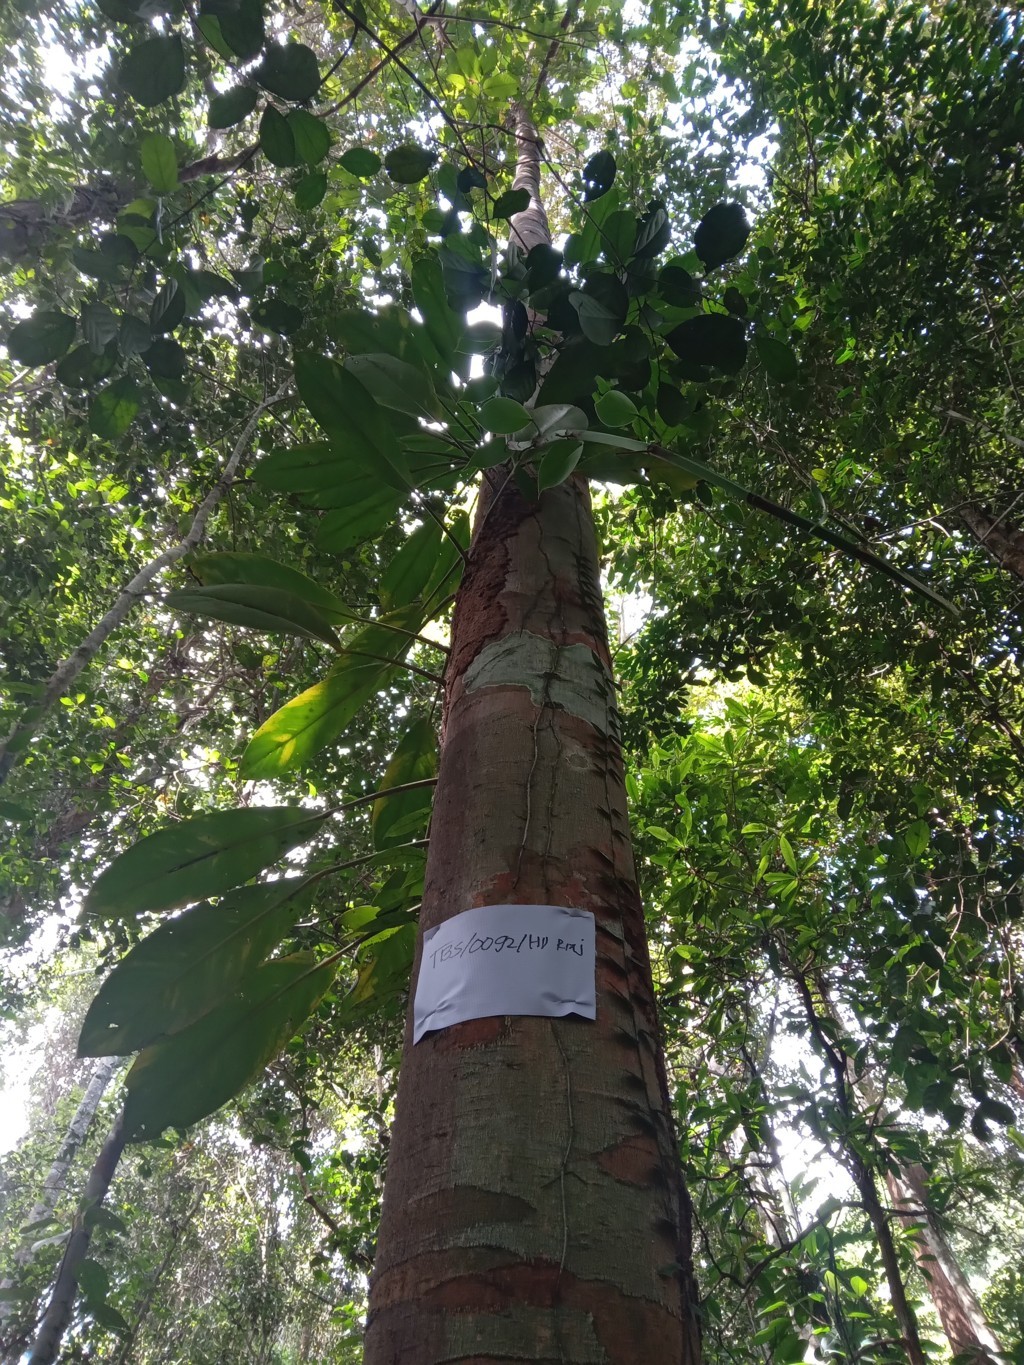 TBS/0092/HD RPJ